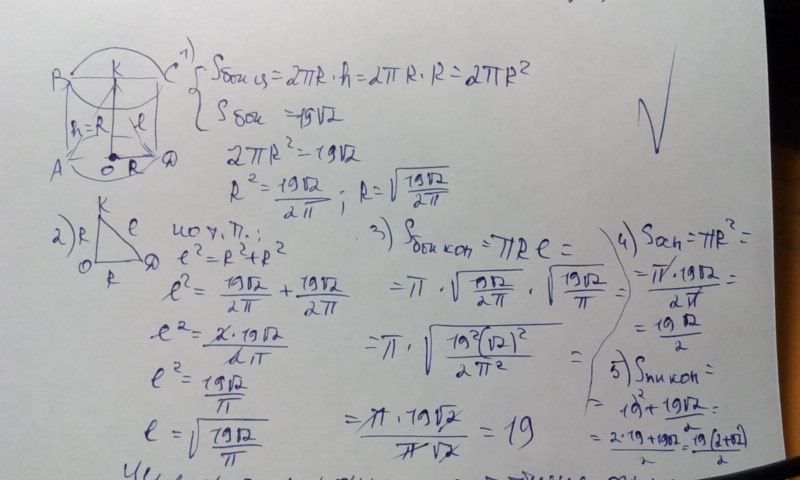 B K C
h=R l
A O R D
1) Sбок ц = 2πR·h = 2πR·R = 2πR²
Sбок = 19√2
2πR² = 19√2
R² = 19√2/2π ; R = √(19√2/2π)
2) K
R l
O R D
по т.П.:
l² = R² + R²
l² = 19√2/2π + 19√2/2π
l² = 2·19√2/2π
l² = 19√2/π
l = √(19√2/π)
3) Sбок кон = πRl =
= π · √(19√2/2π) · √(19√2/π) =
= π · √(19²(√2)²/2π²) =
= π·19√2/π√2 = 19
4) Sосн = πR² =
= π·19√2/2π =
= 19√2/2
5) Sпп кон =
= 19 + 19√2/2 =
= 2·19+19√2/2 = 19(2+√2)/2